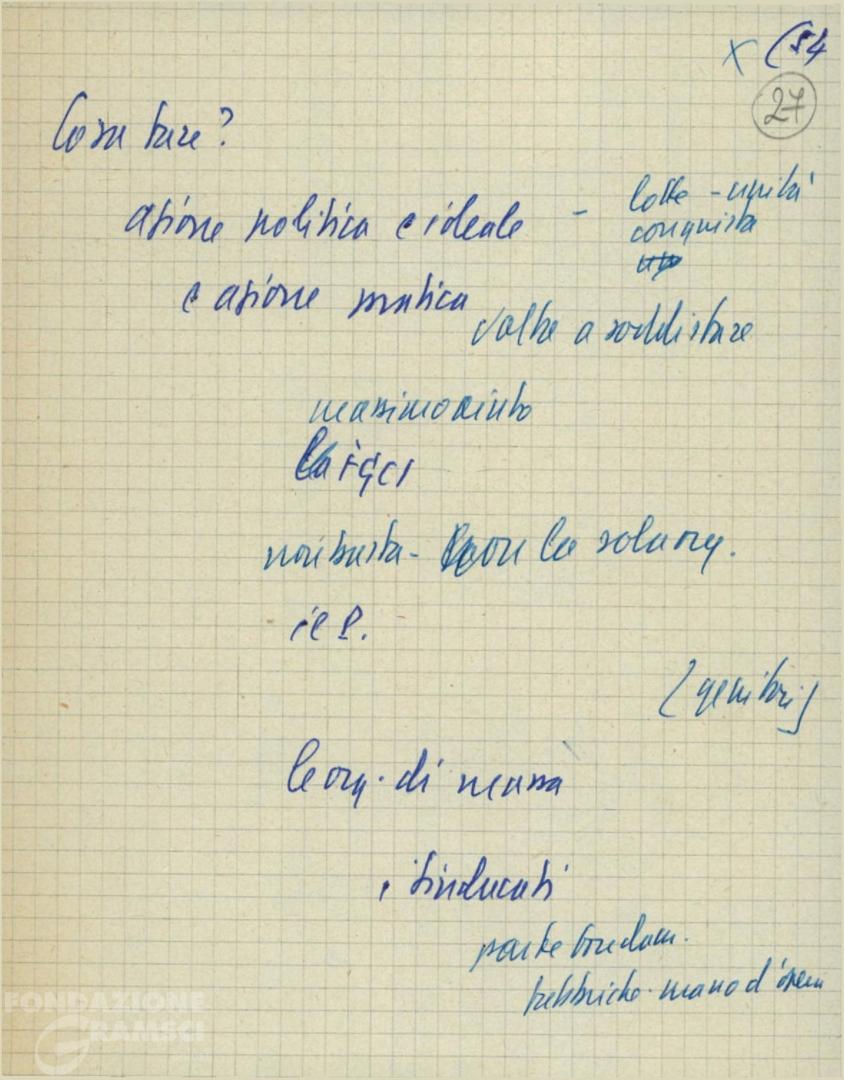 x (54
27
Cosa fare?
azione politica e ideale - lotte - unità
conquista
e azione pratica
volte a soddisfare
massimo aiuto
la FGCI
non basta - con la sola org.
il P.
[genitori]
le org. di massa
i sindacati
parte fondam.
fabbriche - mano d'opera
FONDAZIONE
GRAMSCI